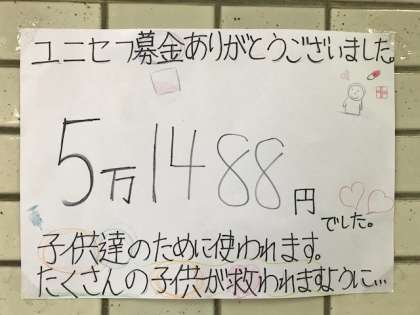 ユニセフ募金ありがとうございました。
5万1488円
でした。
子供達のために使われます。
たくさんの子供が救われますように…